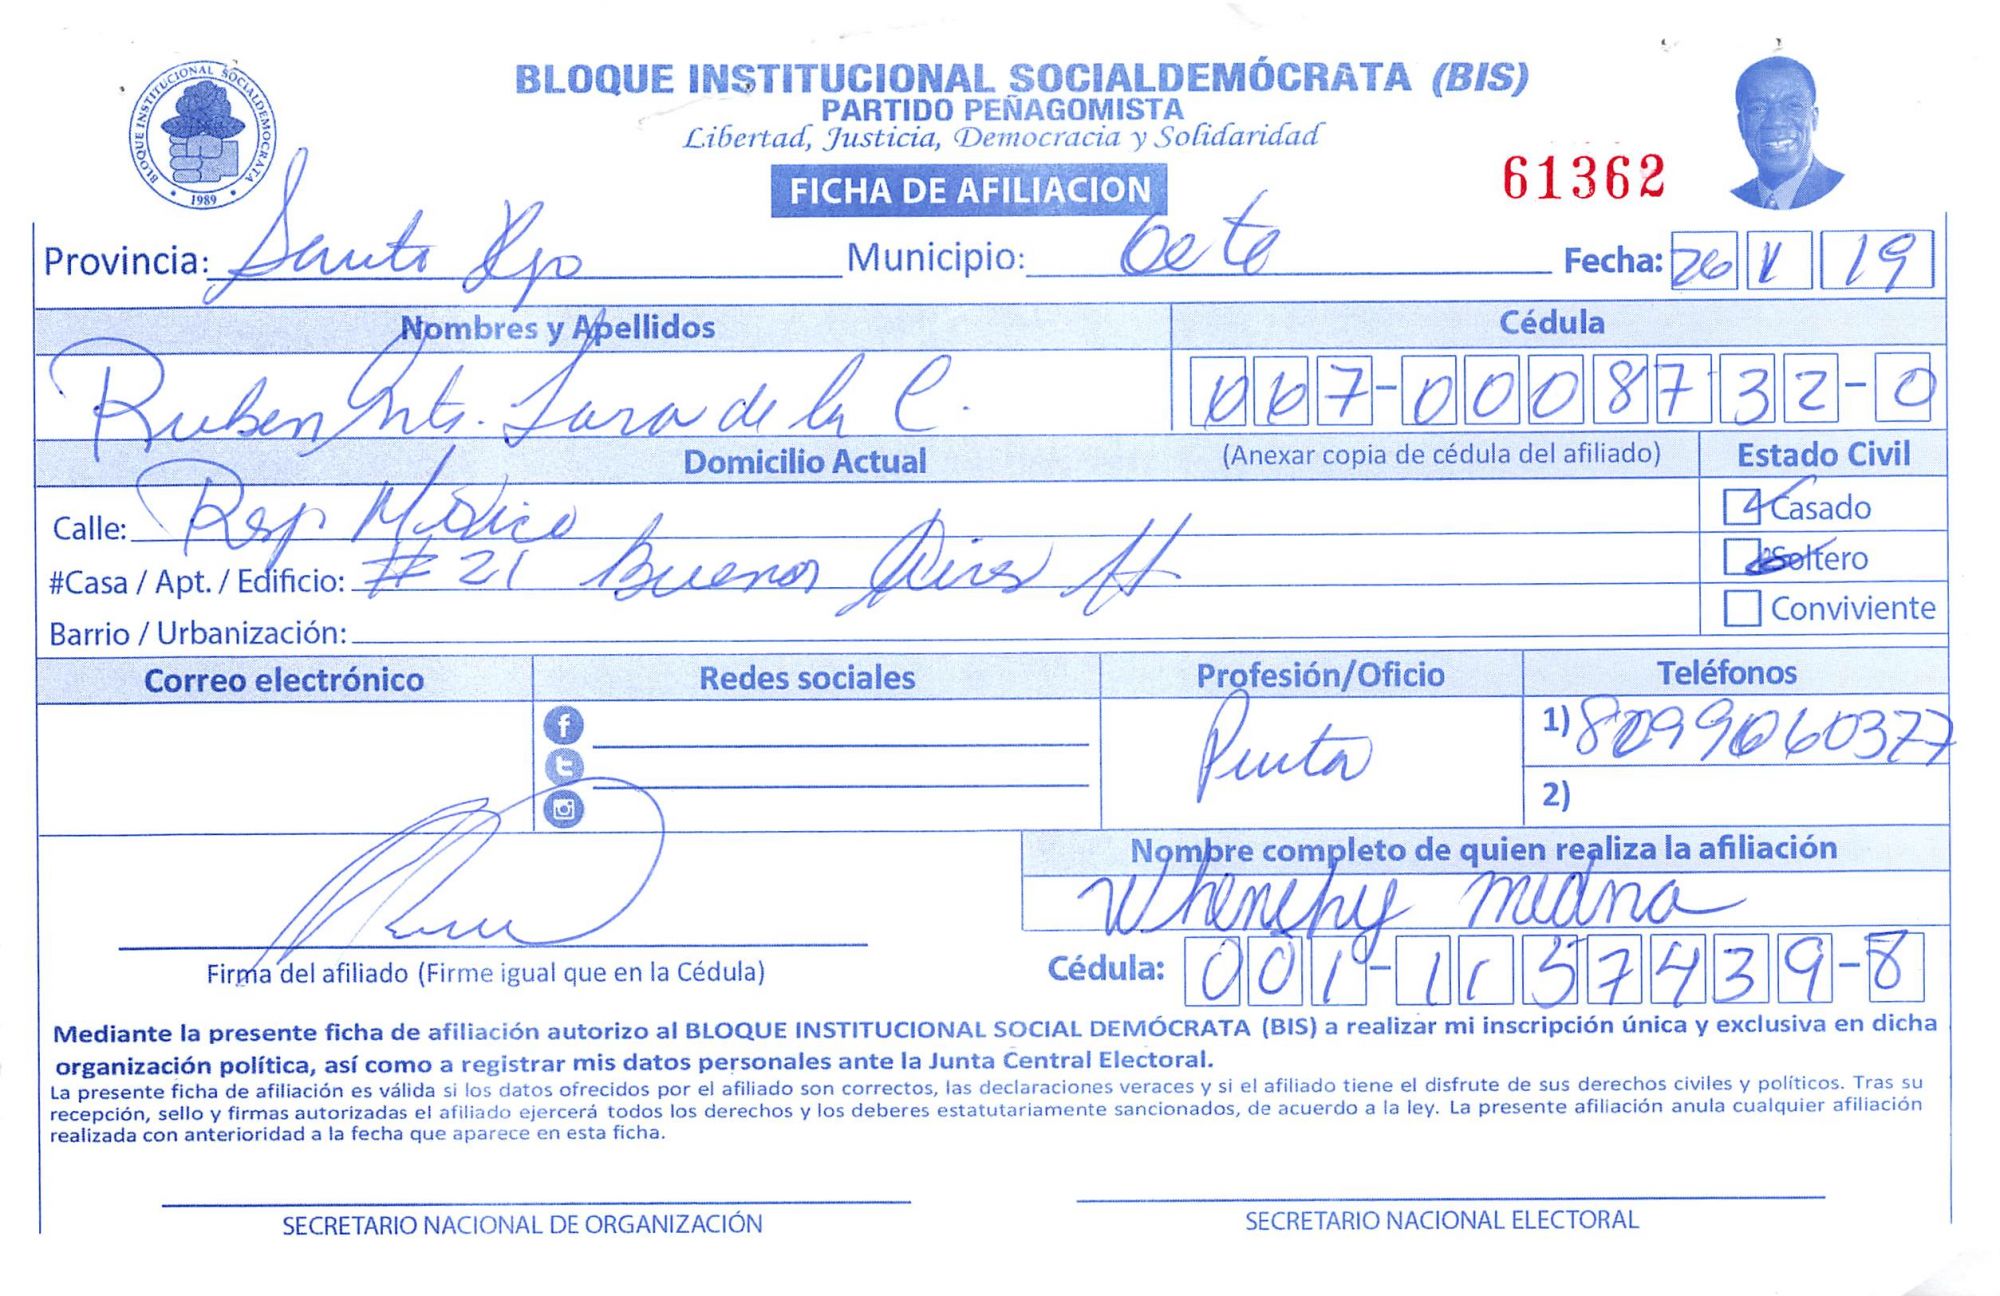 BLOQUE INSTITUCIONAL SOCIALDEMÓCRATA (BIS)
PARTIDO PEÑAGOMISTA
Libertad, Justicia, Democracia y Solidaridad
BLOQUE INSTITUCIONAL SOCIALDEMOCRATA
1989
FICHA DE AFILIACION
61362
Provincia: Santo Dgo Municipio: Oeste Fecha: 26 V 19
Nombres y Apellidos Cédula
Ruben Ant. Lara de la C. 007-0008732-0
Domicilio Actual (Anexar copia de cédula del afiliado) Estado Civil
Calle: Rep Mexico Casado
#Casa / Apt. / Edificio: # 21 Buenos Aires H Soltero
Barrio / Urbanización: Conviviente
Correo electrónico Redes sociales Profesión/Oficio Teléfonos
1) 8099060377
2)
Nombre completo de quien realiza la afiliación
Cédula: 001-1157439-8
Firma del afiliado (Firme igual que en la Cédula)
Mediante la presente ficha de afiliación autorizo al BLOQUE INSTITUCIONAL SOCIAL DEMÓCRATA (BIS) a realizar mi inscripción única y exclusiva en dicha
organización política, así como a registrar mis datos personales ante la Junta Central Electoral.
La presente ficha de afiliación es válida si los datos ofrecidos por el afiliado son correctos, las declaraciones veraces y si el afiliado tiene el disfrute de sus derechos civiles y políticos. Tras su
recepción, sello y firmas autorizadas el afiliado ejercerá todos los derechos y los deberes estatutariamente sancionados, de acuerdo a la ley. La presente afiliación anula cualquier afiliación
realizada con anterioridad a la fecha que aparece en esta ficha.
SECRETARIO NACIONAL DE ORGANIZACIÓN SECRETARIO NACIONAL ELECTORAL